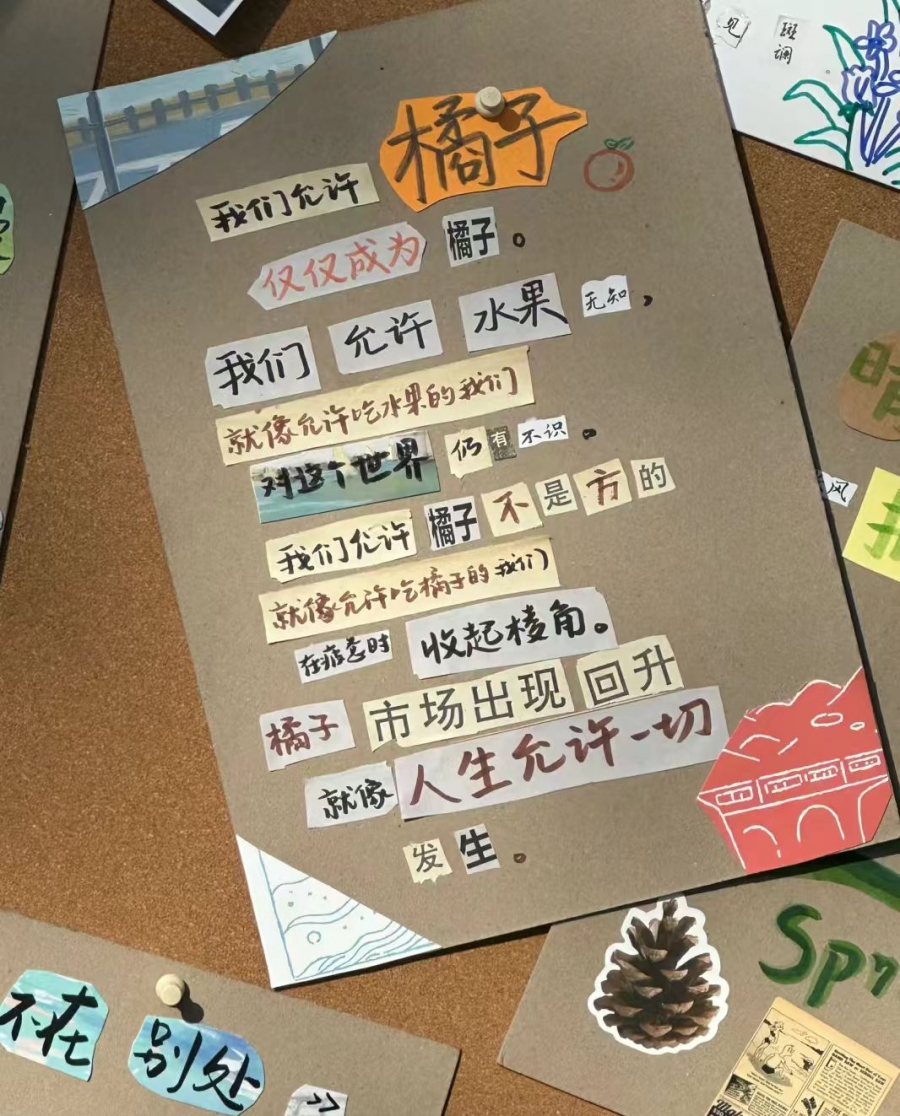 橘子
我们允许
仅仅成为 橘子。
我们 允许 水果 无知，
就像允许吃水果的我们
对这个世界 仍有 不识。
我们允许 橘子 不是方的
就像允许吃橘子的我们
在疲惫时 收起棱角。
橘子 市场出现 回升
就像 人生允许一切
发生。
见 斑斓
晴
风
不在 别处